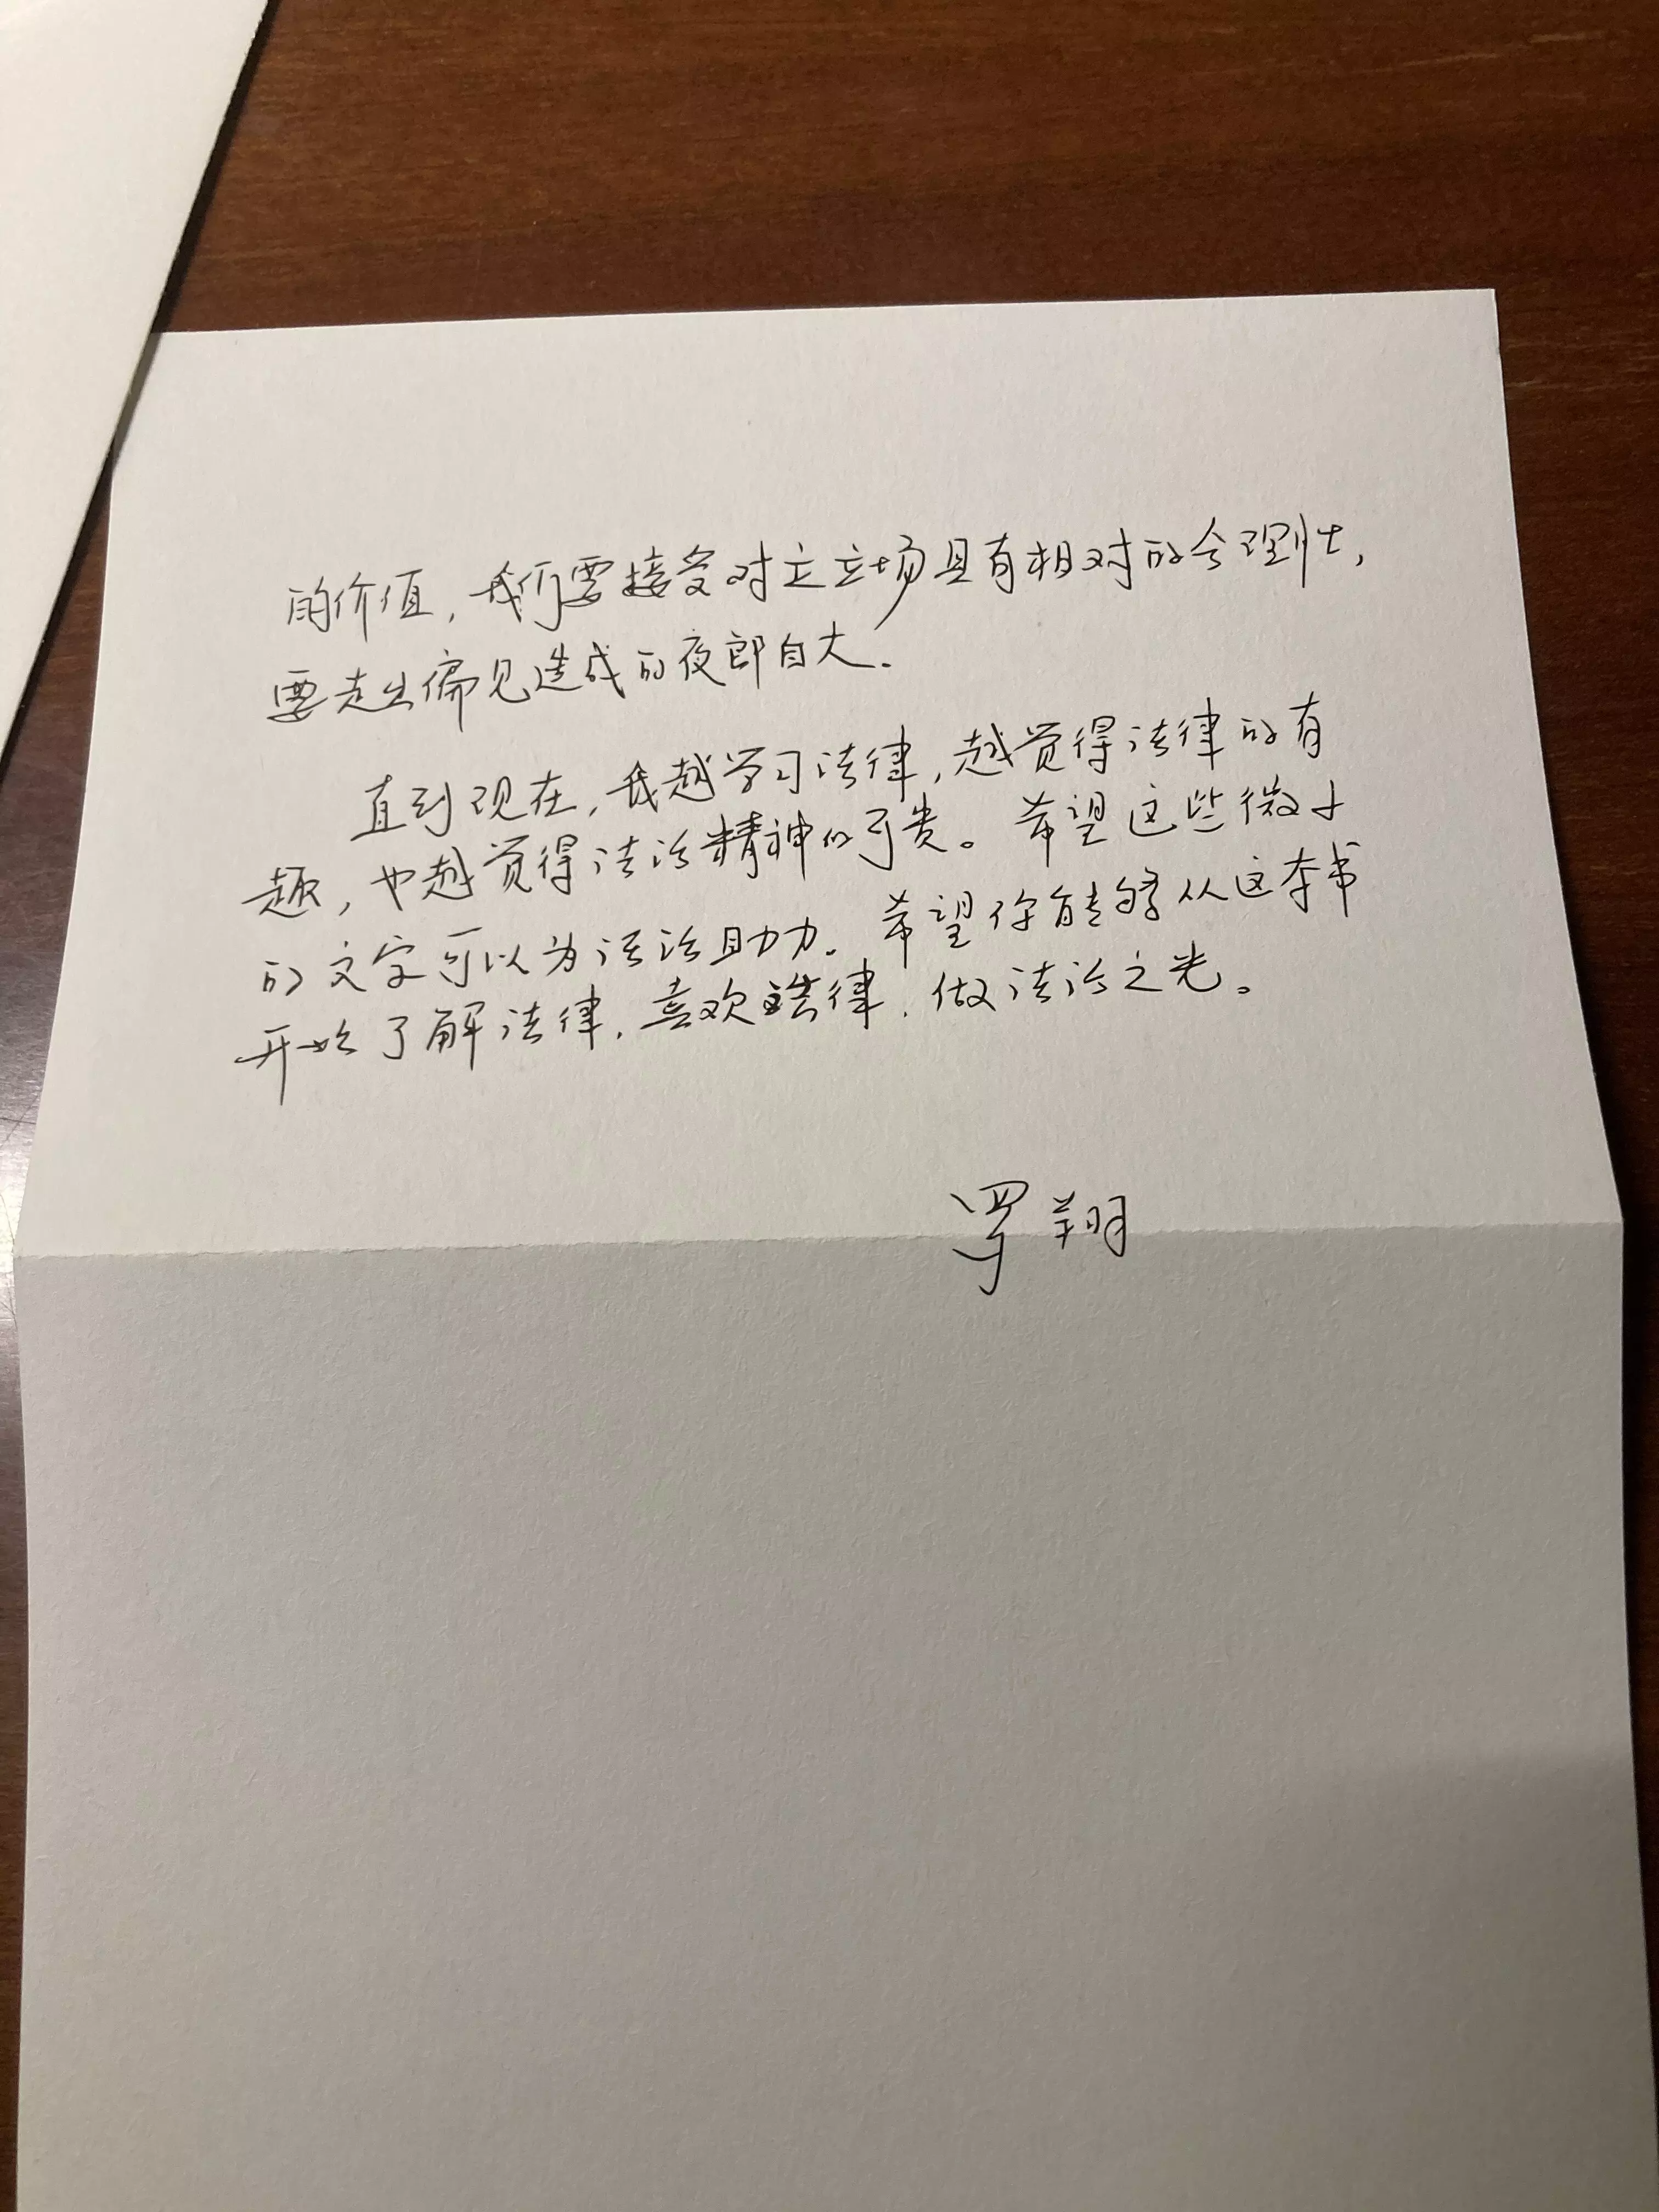 的价值，我们要接受对立立场具有相对的合理性，
要走出偏见造成的夜郎自大．
直到现在，我越学习法律，越觉得法律的有
趣，也越觉得法治精神的可贵。希望这些微小
的文字可以为法治助力．希望你能够从这本书
开始了解法律，喜欢法律，做法治之光。
罗翔